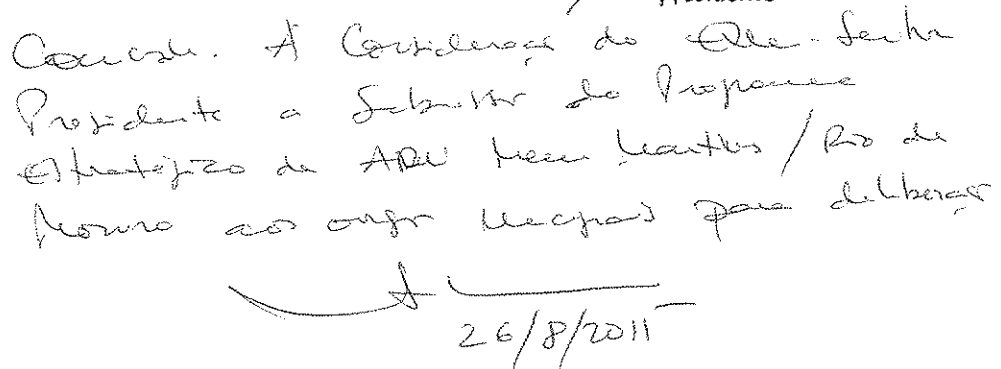 Concordo. À Consideração do Exmo. Senhor
Presidente a Submissão do Programa
Estratégico da ARU Mem Martins / Rio de
Mouro aos órgãos Municipais para deliberação
26/8/2015